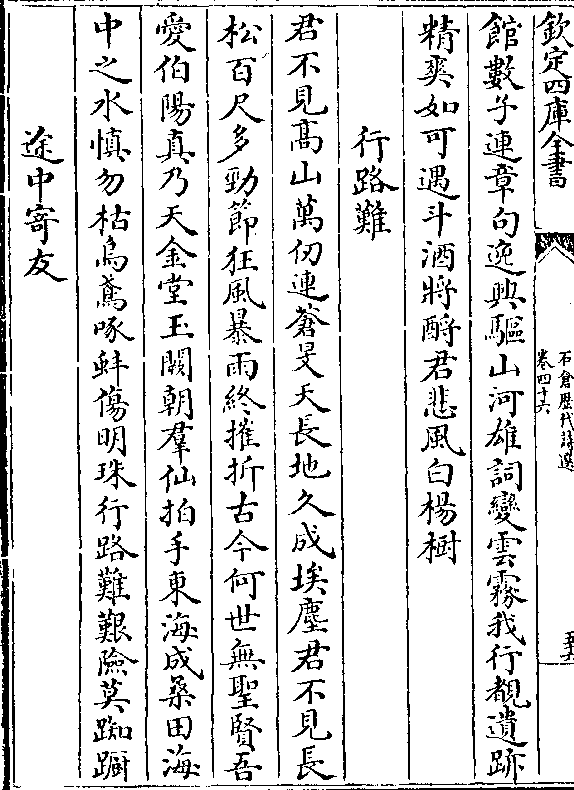 欽定四庫全書
石倉歴代詩選
卷四十六
館數子連章句逸興驅山河雄詞變雲霧我行覩遺跡
精爽如可遇斗酒將酹君悲風白楊樹
行路難
君不見髙山萬仞連蒼旻天長地久成埃塵君不見長
松百尺多勁節狂風暴雨終摧折古今何世無聖賢吾
愛伯陽真乃天金堂玉闕朝羣仙拍手東海成桑田海
中之水慎勿枯烏鳶啄蚌傷明珠行路難艱險莫踟蹰
途中寄友